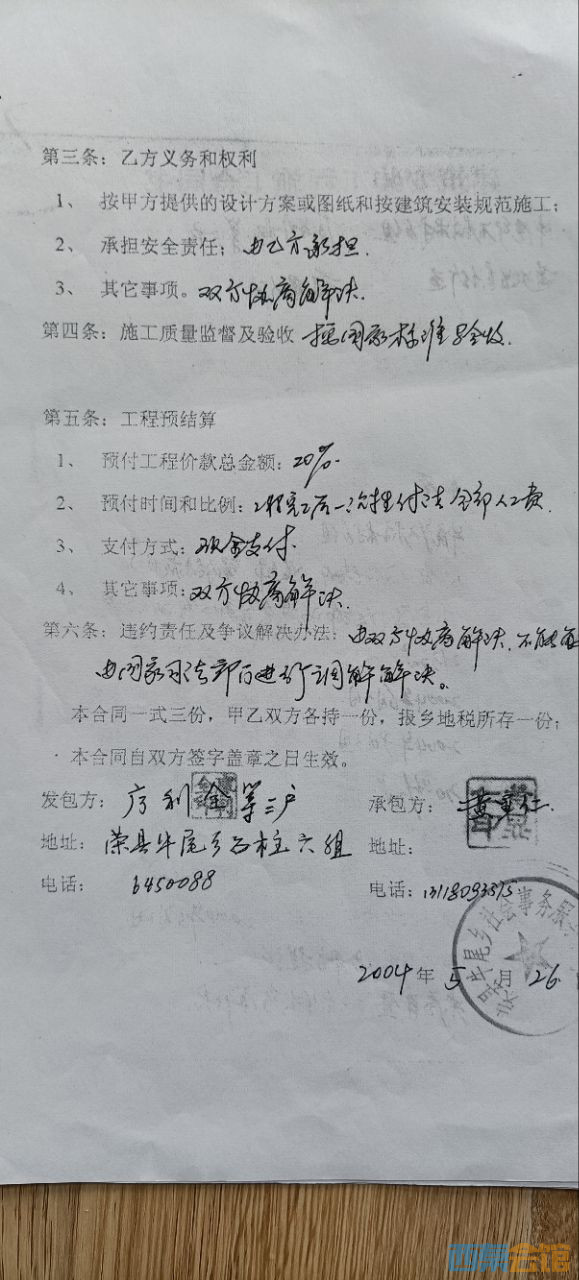 第三条：乙方义务和权利
1、 按甲方提供的设计方案或图纸和按建筑安装规范施工；
2、 承担安全责任；由乙方承担.
3、 其它事项。双方协商解决.
第四条：施工质量监督及验收 按国家标准验收.
第五条：工程预结算
1、 预付工程价款总金额：20%.
2、 预付时间和比例：工程完工后一次性付清全部人工费.
3、 支付方式：现金支付.
4、 其它事项：双方协商解决.
第六条：违约责任及争议解决办法：由双方协商解决.不能
由国家司法部门进行调解解决。
本合同一式三份，甲乙双方各持一份，报乡地税所存一份；
本合同自双方签字盖章之日生效。
发包方： 利金等三户
承包方：
地址：荣县牛尾乡石柱六组
地址：
电话： 6450088
电话：
牛尾乡社会事务服
2004年5月26.
西柔会馆